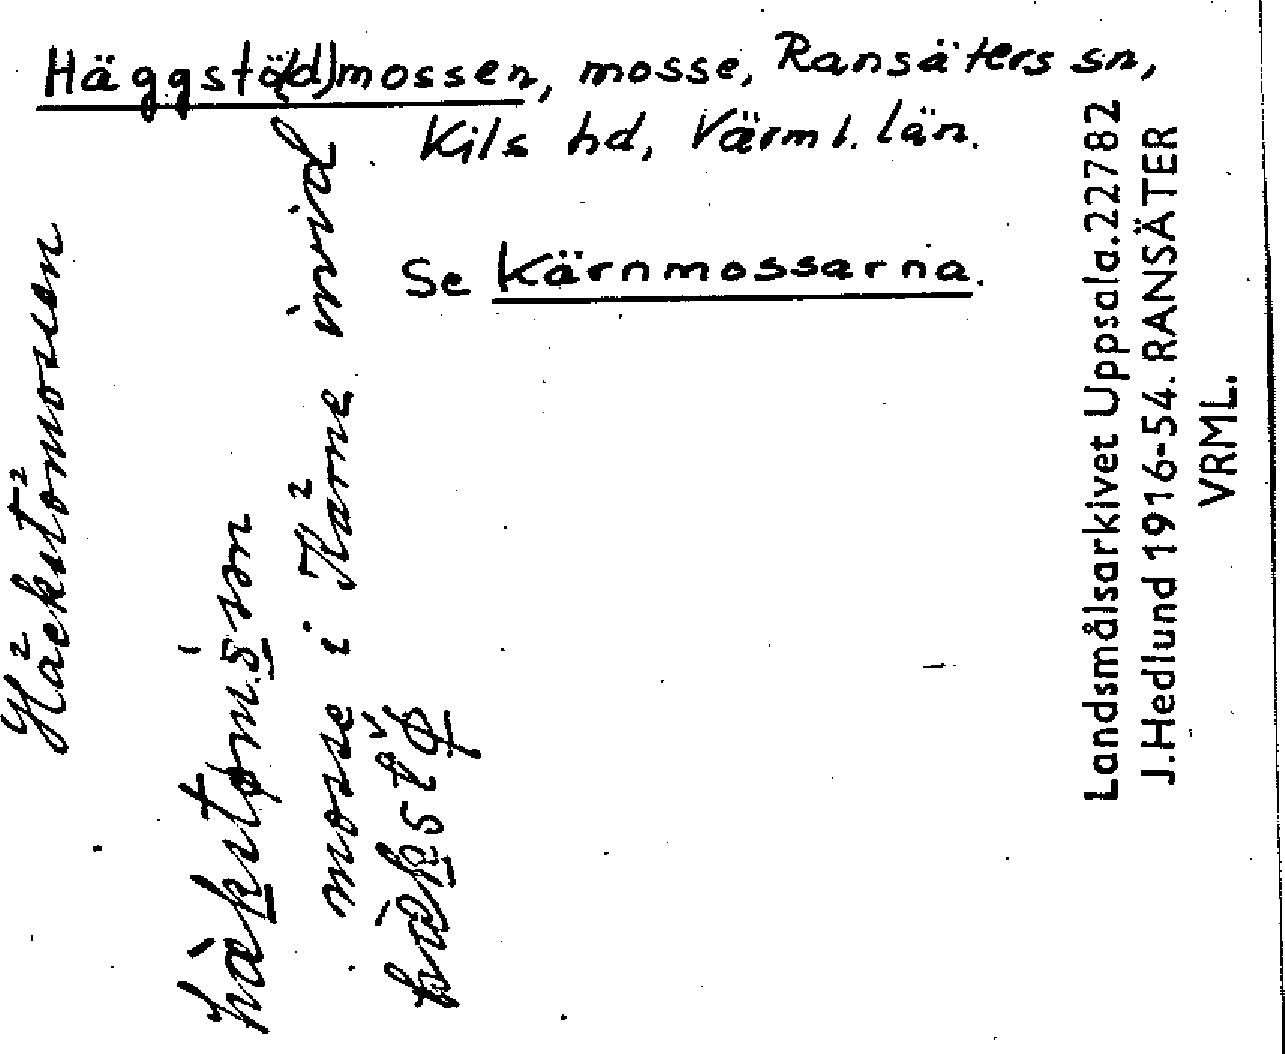 Häggstö(d)mossen, mosse, Ransäters sn,
Kils hd, Värml. län.
Se Kärnmossarna.
Häckstömossen
mosse i Kärne invid
Landsmålsarkivet Uppsala.22782
J.Hedlund 1916-54. RANSÄTER
VRML.